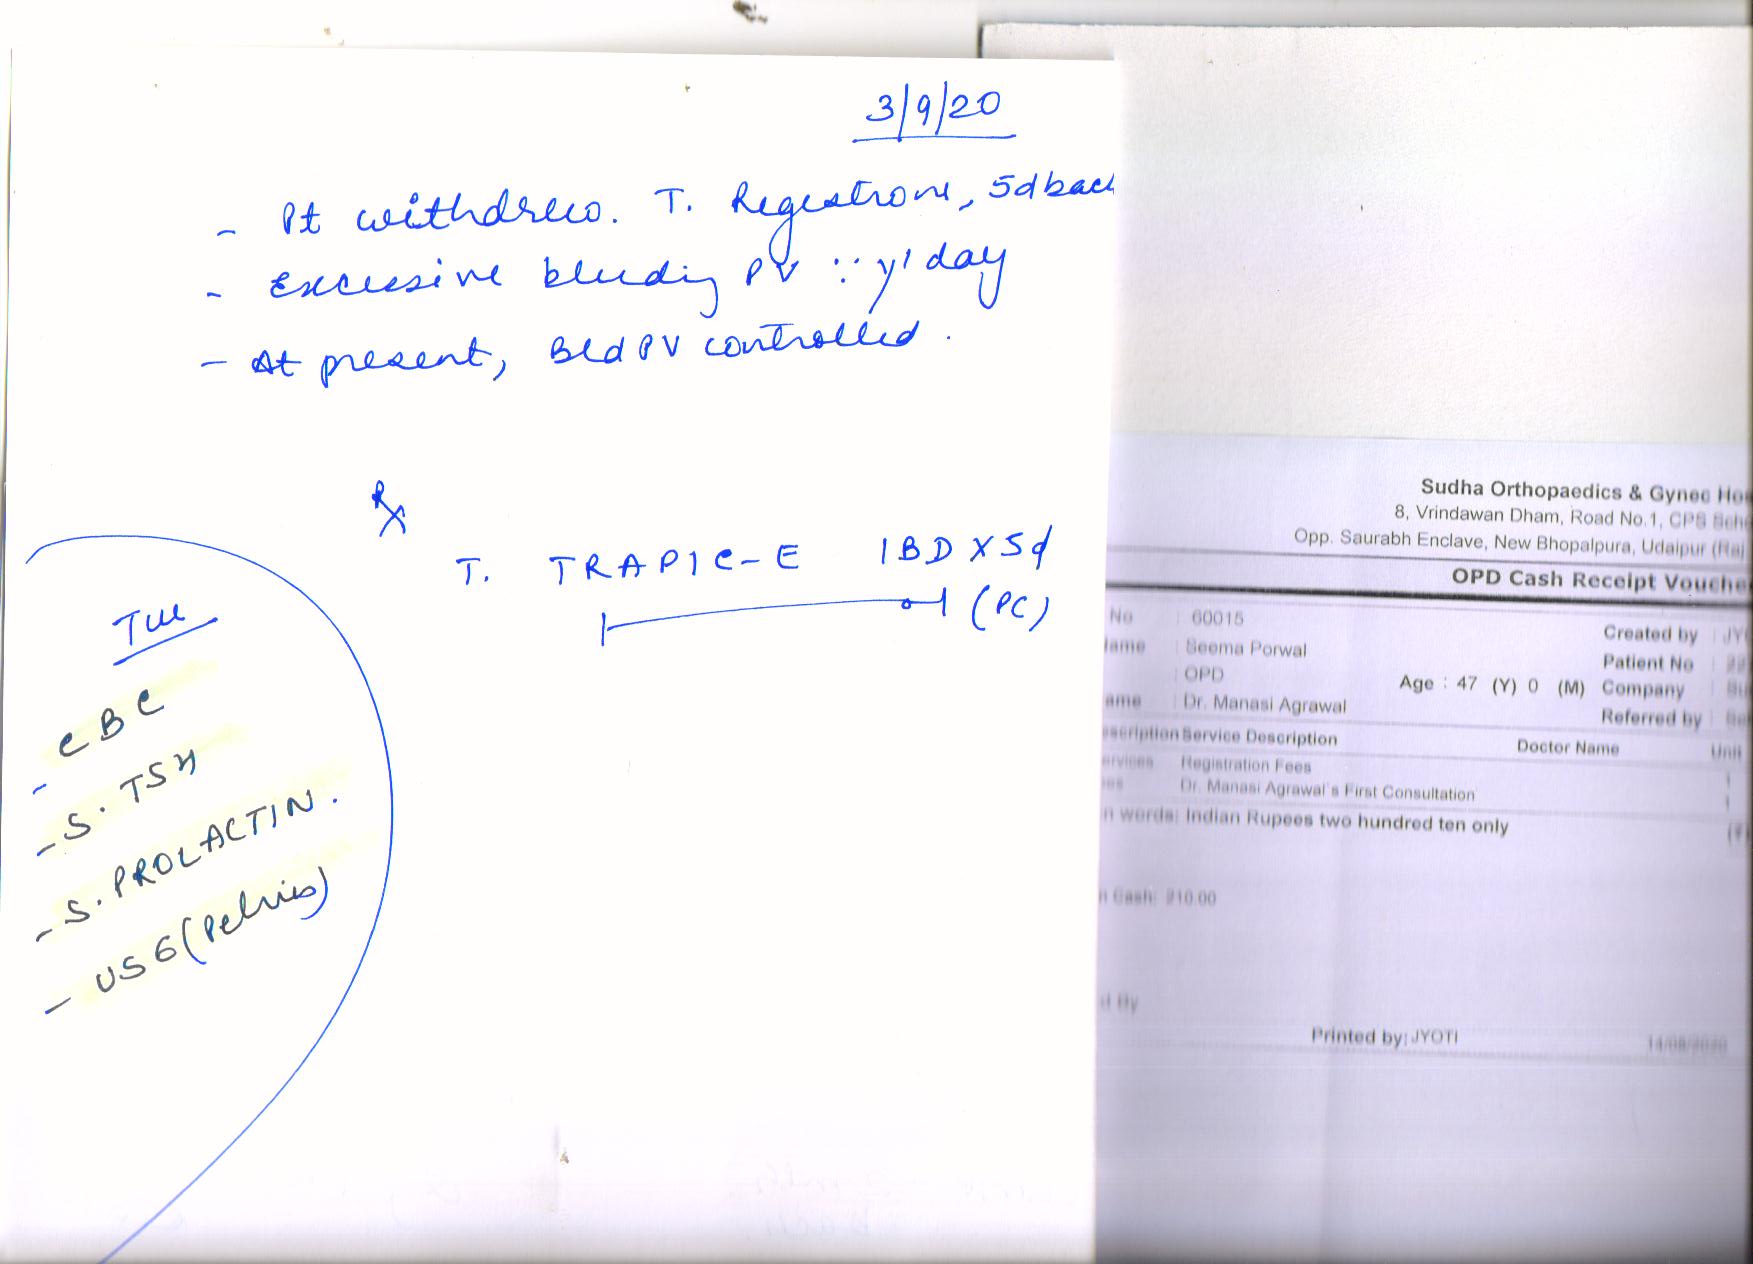 3/9/20
- Pt withdrew. T. Regestrone, 5d back
- Excessive bleeding PV ∵ y'day
- At present, Bld PV controlled.
Rx
T. TRAPIC-E 1BD X 5d
(PC)
- CBC
- S. TSH
- S. PROLACTIN.
- USG (Pelvis)
Sudha Orthopaedics & Gynec Ho
8, Vrindawan Dham, Road No.1, CPS Sch
Opp. Saurabh Enclave, New Bhopalpura, Udaipur (Raj
OPD Cash Receipt Vouche
No : 60015 Created by : JY
ame : Seema Porwal Patient No
: OPD Age : 47 (Y) 0 (M) Company
ame : Dr. Manasi Agrawal Referred by
Service Description Doctor Name Unit
Registration Fees 1
Dr. Manasi Agrawal's First Consultation 1
n words: Indian Rupees two hundred ten only
n Cash: 210.00
d By
Printed by: JYOTI 14/08/2020